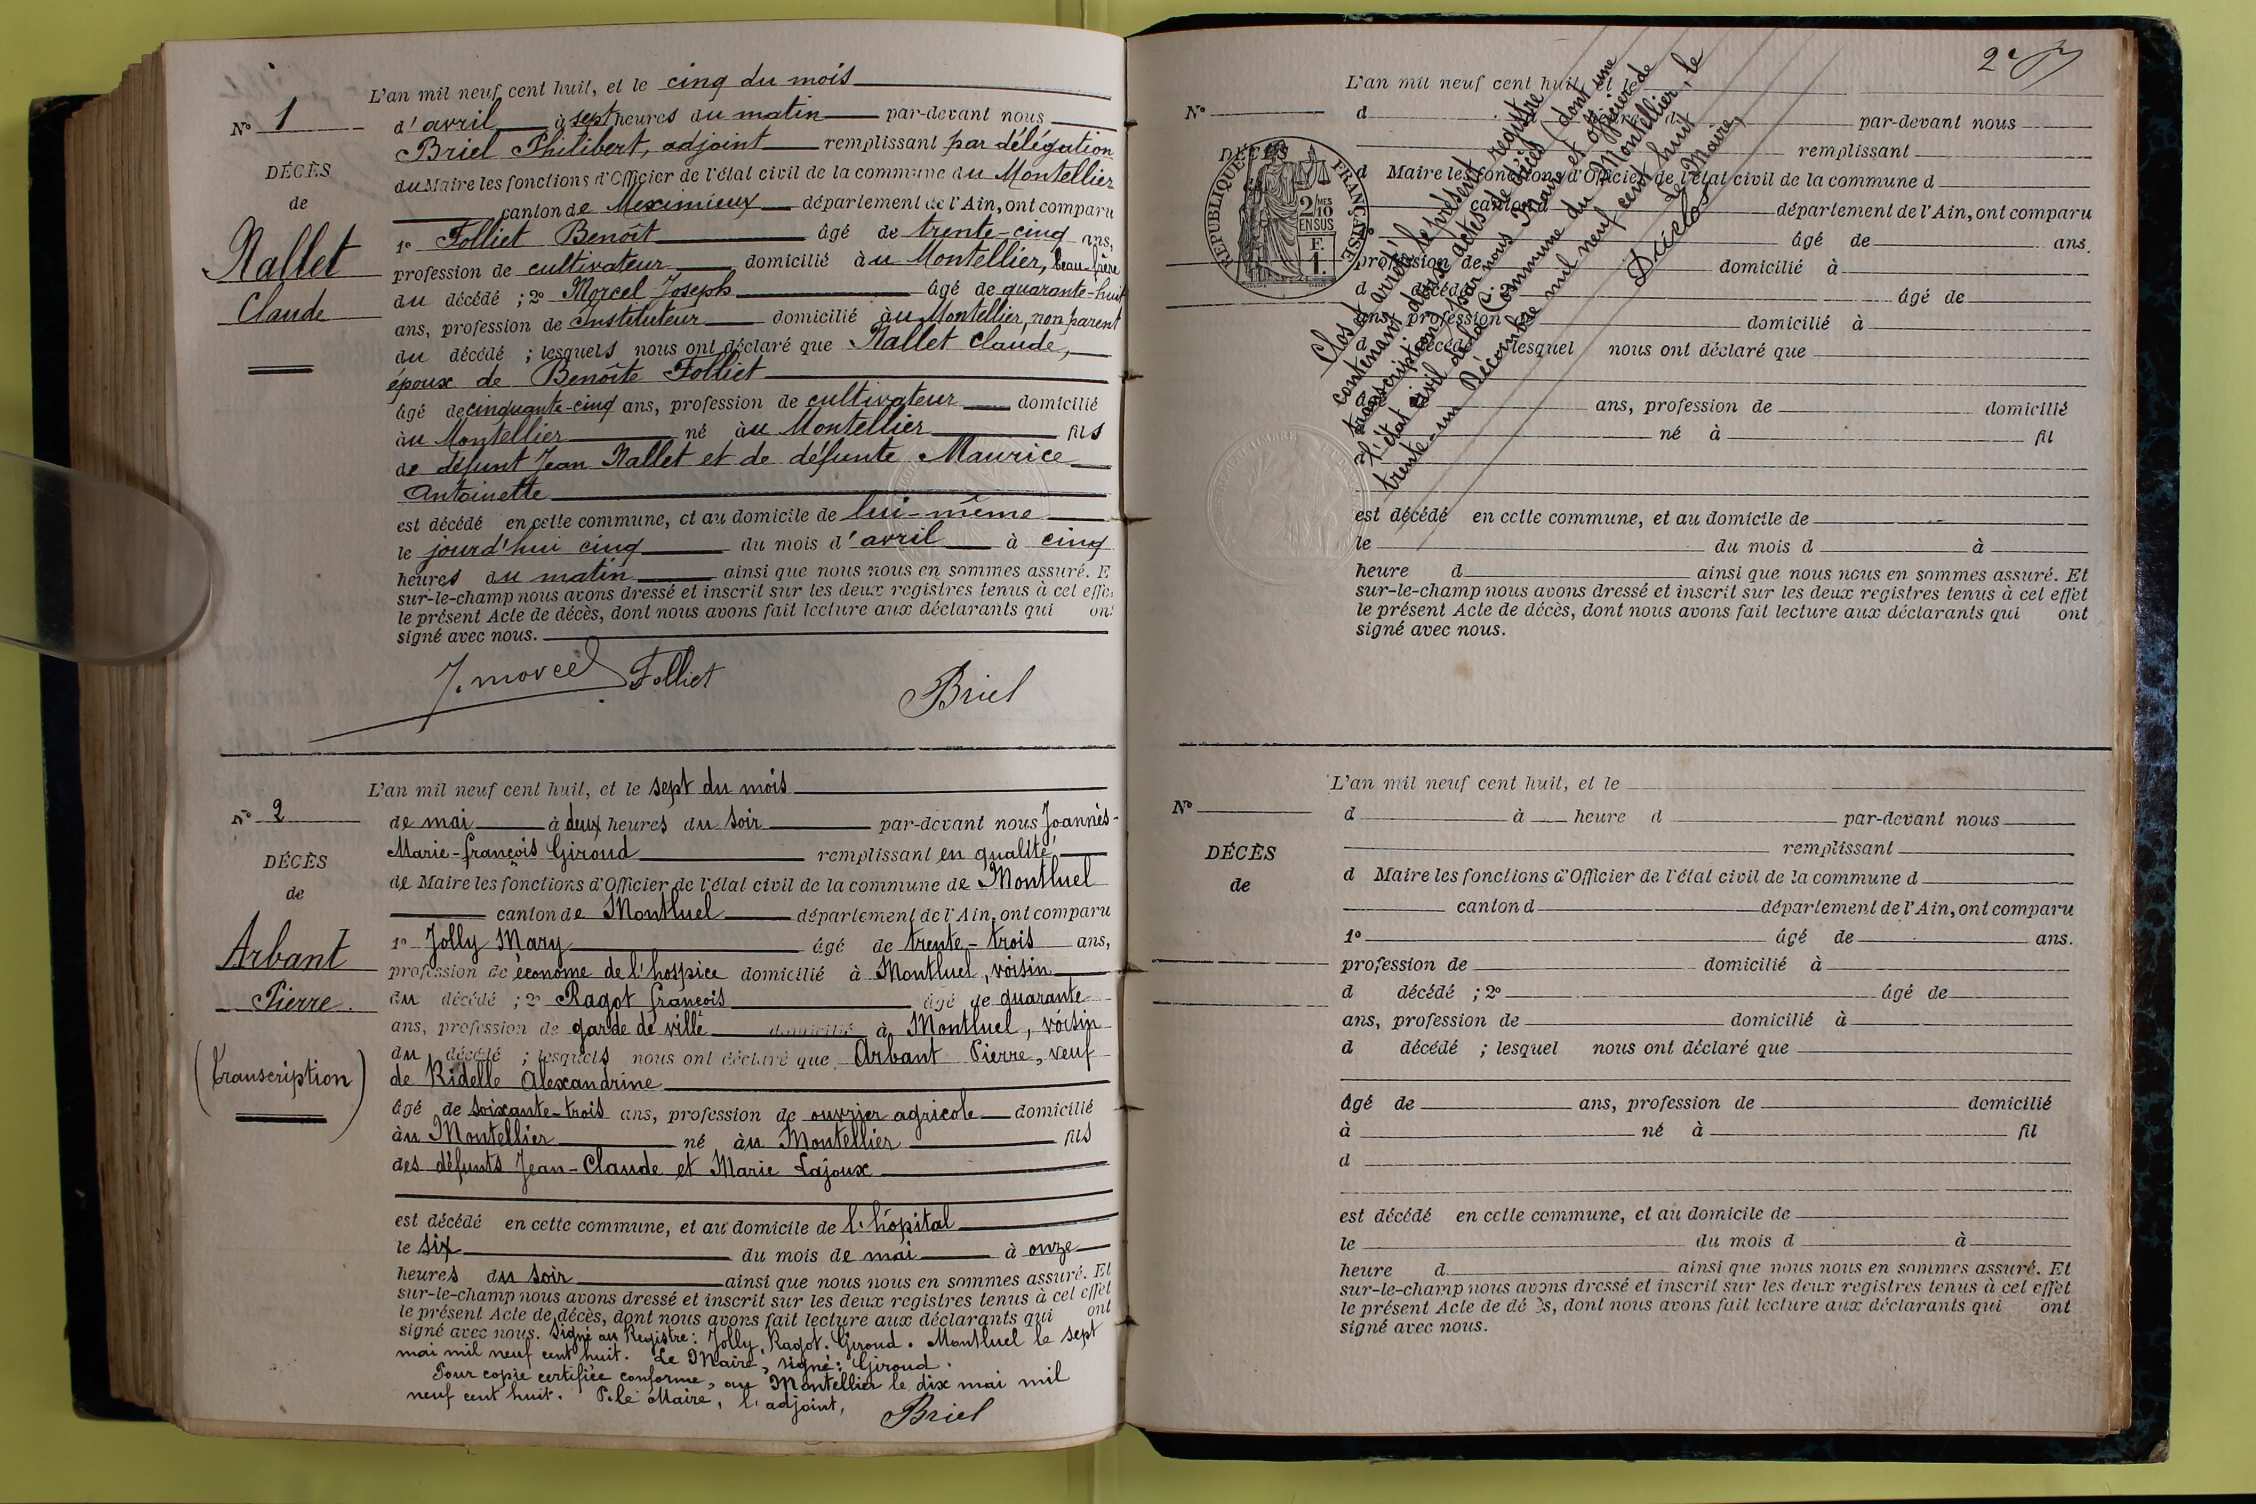 L'an mil neuf cent huit, et le cinq du mois
N° 1
d'avril à sept heures du matin par-devant nous
Briel Philibert, adjoint remplissant par délégation
DÉCÈS
du Maire les fonctions d'Officier de l'état civil de la commune du Montellier
de
canton de Meximieux département de l'Ain, ont comparu
Nallet
1° Folliet Benoît âgé de trente-cinq ans,
profession de cultivateur domicilié à u Montellier, beau-frère
Claude
du décédé ; 2° Morcel Joseph âgé de quarante-huit
ans, profession de Instituteur domicilié à u Montellier, non parent
du décédé ; lesquels nous ont déclaré que Nallet Claude,
époux de Benoîte Folliet
âgé de cinquante-cinq ans, profession de cultivateur domicilié
à u Montellier né à u Montellier fils
de défunt Jean Nallet et de défunte Maurice
Antoinette
est décédé en cette commune, et au domicile de lui-même
le jourd'hui cinq du mois d'avril à cinq
heures du matin ainsi que nous nous en sommes assuré. E
sur-le-champ nous avons dressé et inscrit sur les deux registres tenus à cet effe
le présent Acte de décès, dont nous avons fait lecture aux déclarants qui ont
signé avec nous.
J. Morcel Folliet Briel
L'an mil neuf cent huit, et le sept du mois
N° 2
de mai à deux heures du soir par-devant nous Joannès-
Marie-François Giroud remplissant en qualité
DÉCÈS
de Maire les fonctions d'Officier de l'état civil de la commune de Montluel
de
canton de Montluel département de l'Ain, ont comparu
Arbant
1° Jolly Mary âgé de trente-trois ans,
profession de économe de l'hospice domicilié à Montluel, voisin
Pierre.
du décédé ; 2° Ragot François âgé de quarante
ans, profession de garde de ville domicilié à Montluel, voisin
du décédé ; lesquels nous ont déclaré que Arbant Pierre, veuf
(Transcription)
de Ridelle Alexandrine
âgé de soixante-trois ans, profession de ouvrier agricole domicilié
à u Montellier né à u Montellier fils
des défunts Jean-Claude et Marie Lajoux
est décédé en cette commune, et au domicile de l'hôpital
le six du mois de mai à onze
heures du soir ainsi que nous nous en sommes assuré. Et
sur-le-champ nous avons dressé et inscrit sur les deux registres tenus à cet effet
le présent Acte de décès, dont nous avons fait lecture aux déclarants qui ont
signé avec nous. Signé au Registre: Jolly, Ragot. Giroud. Montluel le sept
mai mil neuf cent huit. Le Maire, signé: Giroud.
Pour copie certifiée conforme, au Montellier le dix mai mil
neuf cent huit. P. le Maire, l'adjoint, Briel
2e
L'an mil neuf cent huit, et le
N°
d heure d par-devant nous
remplissant
DÉCÈS
d Maire les fonctions d'Officier de l'état civil de la commune d
canton d département de l'Ain, ont comparu
âgé de ans.
profession de domicilié à
d décédé âgé de
ans, profession d domicilié à
d décédé lesquel nous ont déclaré que
ans, profession de domicilié
né à fil
est décédé en cette commune, et au domicile de
le du mois d à
heure d ainsi que nous nous en sommes assuré. Et
sur-le-champ nous avons dressé et inscrit sur les deux registres tenus à cet effet
le présent Acte de décès, dont nous avons fait lecture aux déclarants qui ont
signé avec nous.
RÉPUBLIQUE FRANÇAISE
2/10 MES
EN SUS
F.
1.
Clos et arrêté le présent registre
contenant deux actes de décès (dont une
transcription) par nous Maire et officier de
l'état civil de la Commune du Montellier, le
trente-un Décembre mil neuf cent huit
Le Maire,
L'an mil neuf cent huit, et le
N°
d à heure d par-devant nous
remplissant
DÉCÈS
d Maire les fonctions d'Officier de l'état civil de la commune d
de
canton d département de l'Ain, ont comparu
1° âgé de ans.
profession de domicilié à
d décédé ; 2° âgé de
ans, profession de domicilié à
d décédé ; lesquel nous ont déclaré que
âgé de ans, profession de domicilié
à né à fil
d
est décédé en cette commune, et au domicile de
le du mois d à
heure d ainsi que nous nous en sommes assuré. Et
sur-le-champ nous avons dressé et inscrit sur les deux registres tenus à cet effet
le présent Acte de dé s, dont nous avons fait lecture aux déclarants qui ont
signé avec nous.